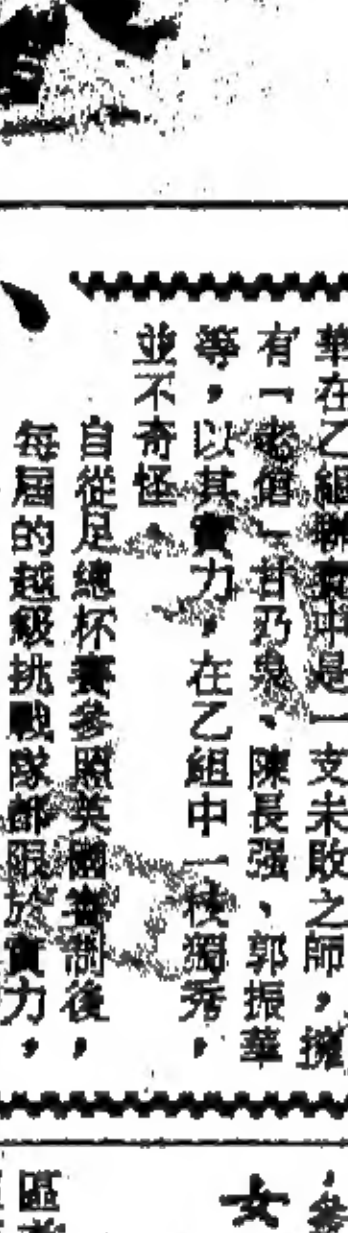 華在乙組聯賽中是一支未敗之師，擁
有「老倌」甘乃泉、陳長强、郭振華
等，以其實力，在乙組中一枝獨秀，
並不奇怪。
自從足總杯賽參照英國賽制後，
每屆的越級挑戰隊都限於實力，
女
區